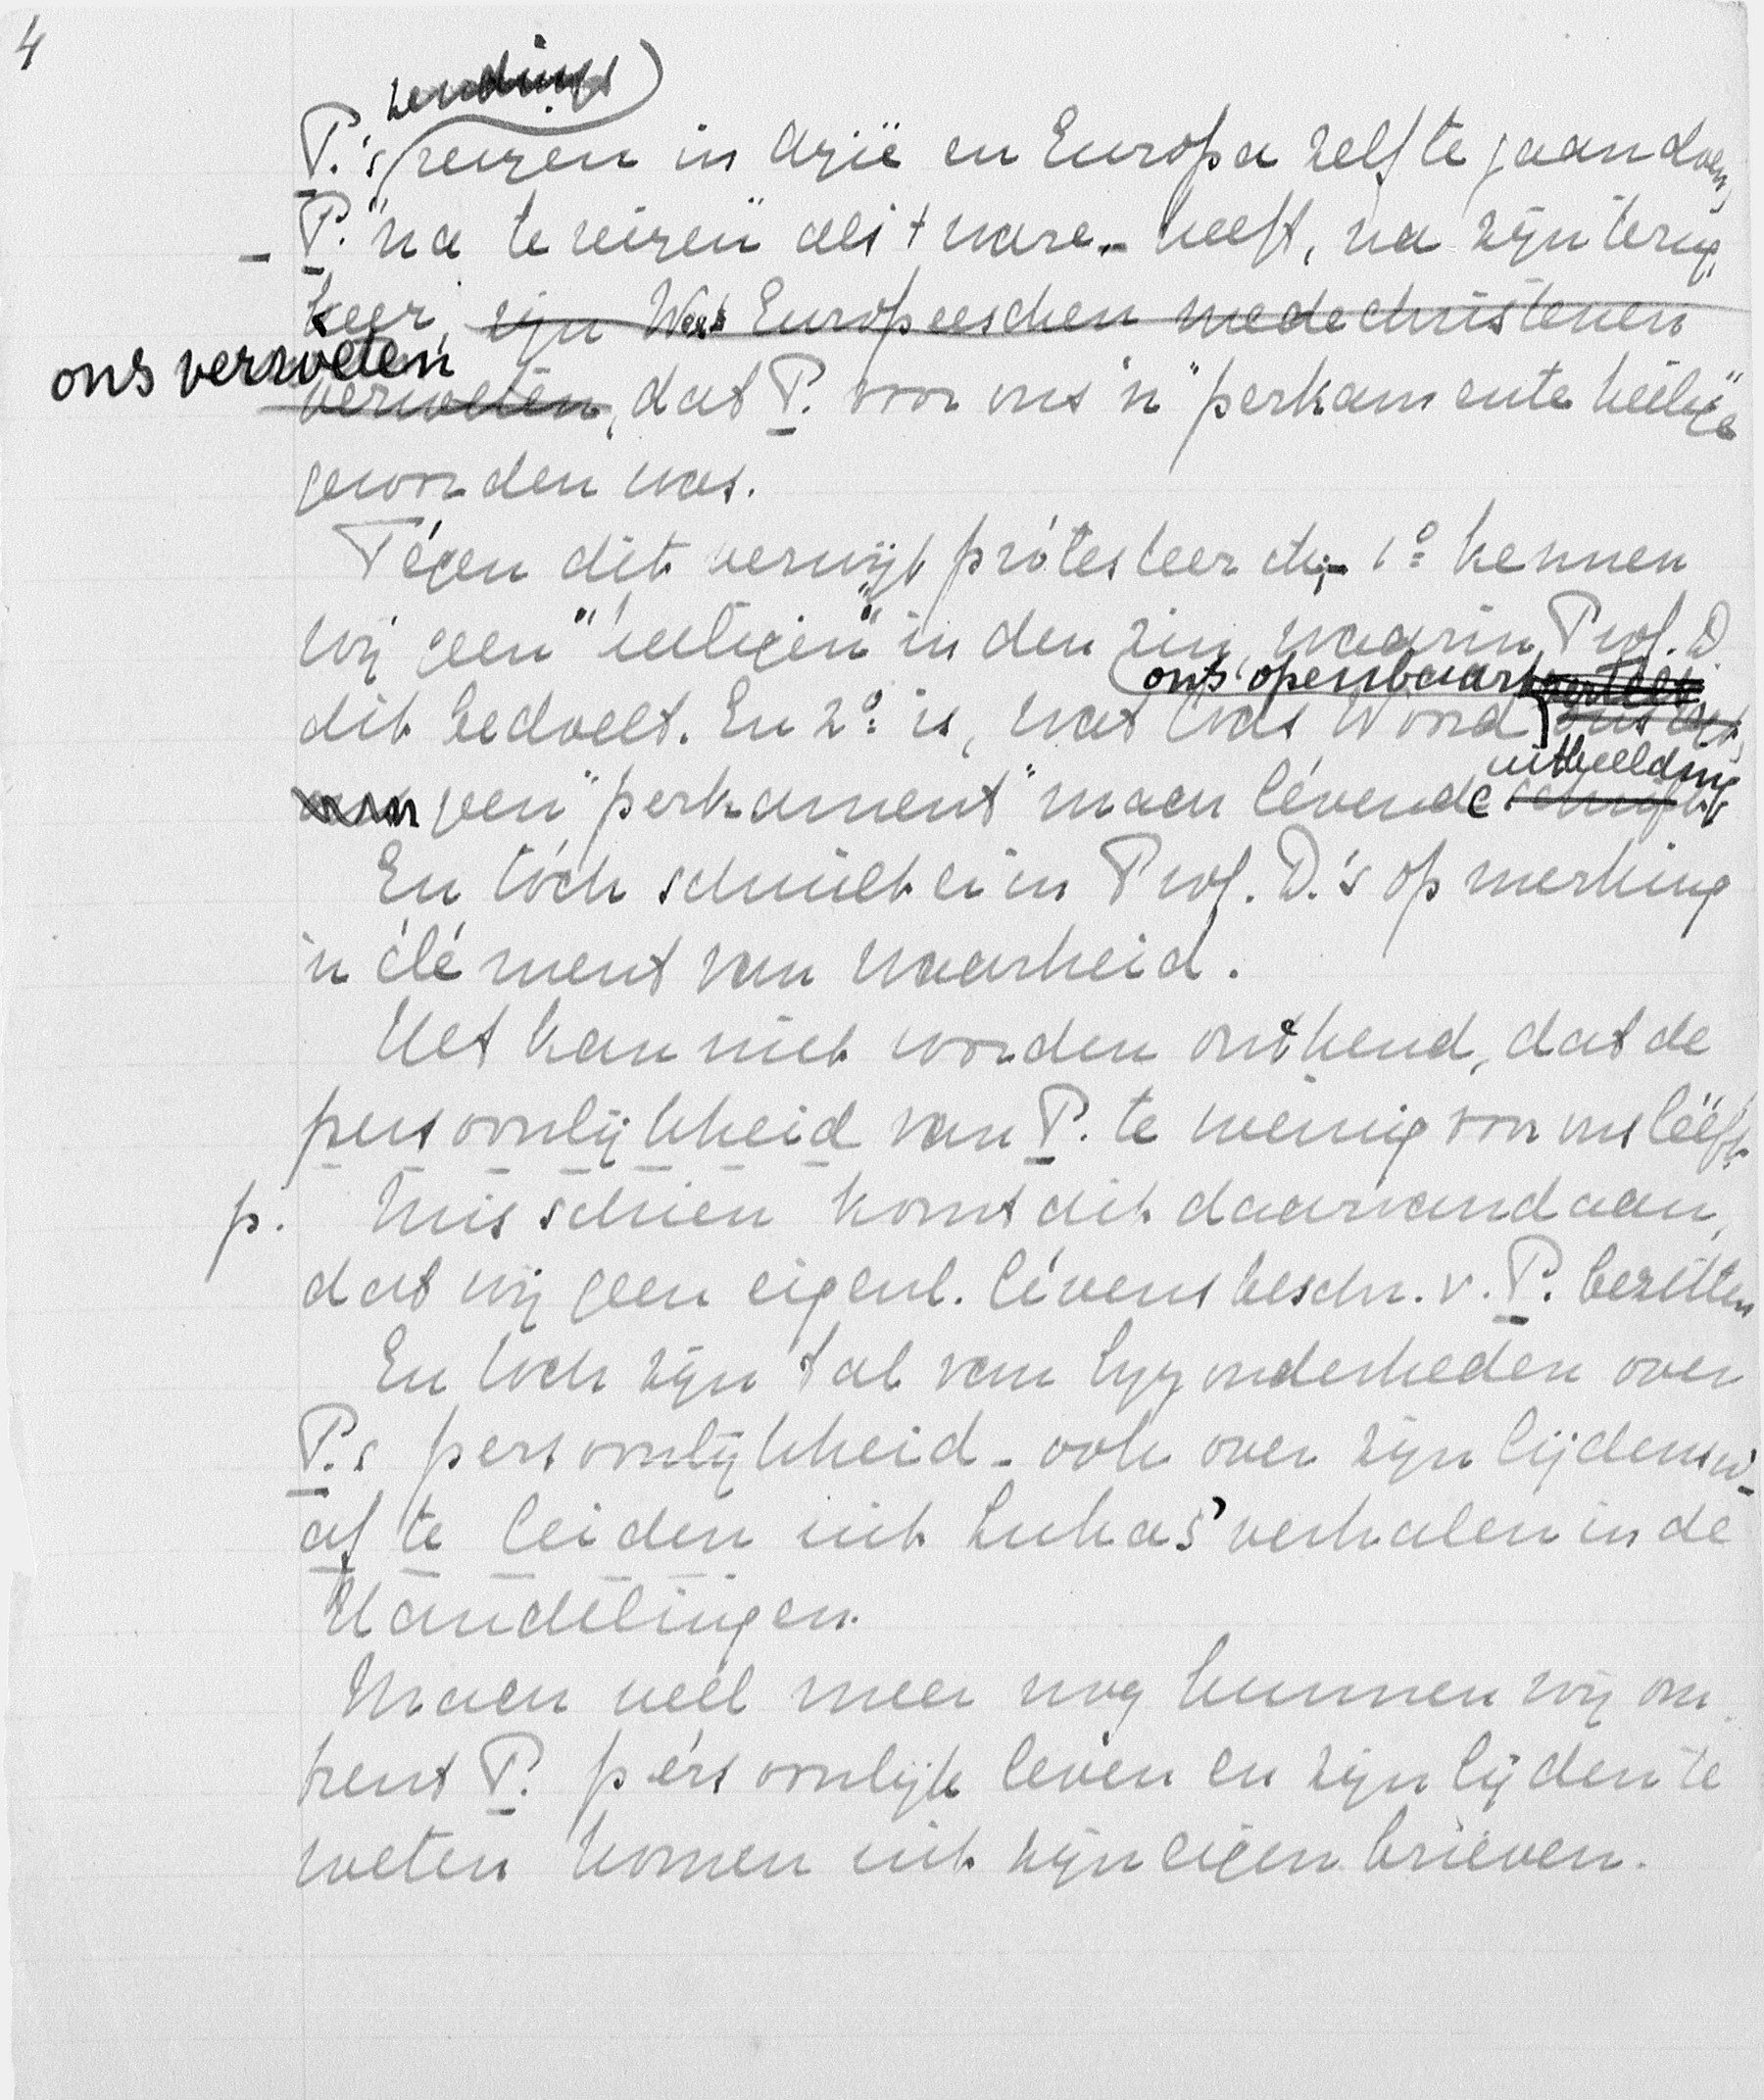 4
zendings
P.'s reizen in Azië en Europa zelf te gaan doen,
– P. "na te reizen" als 't ware – heeft, na zijn terug-
keer, zijn West Europeeschen medechristenen
ons verweten
verweten, dat P. voor ons 'n "perkamente heilige"
geworden was.
Tégen dit verwijt protesteer ik; 1º kennen
wij geen "heiligen" in den zin, waarin Prof. D.
ons openbaart vertelt
dit bedoelt. En 2º is, wat Gods Woord
uitbeelding
geen "perkament" maar lévende schrift
En tóch schuilt er in Prof. D.'s opmerking
'n élément van waarheid.
Het kan niet worden ontkend, dat de
persoonlijkheid van P. te weinig voor ons lééft.
p. Misschien komt dit daarvandaan,
dat wij geen eigenl. lévensbeschr. v. P. bezitten
En toch zijn tal van byzonderheden over
P.s persoonlijkheid – ook over zijn lijdensw. –
af te leiden uit Lukas' verhalen in de
Handelingen.
Maar véél meer nog kunnen wij om-
trent P. pérsoonlijk leven en zijn lijden te
weten komen uit zijn eigen brieven.